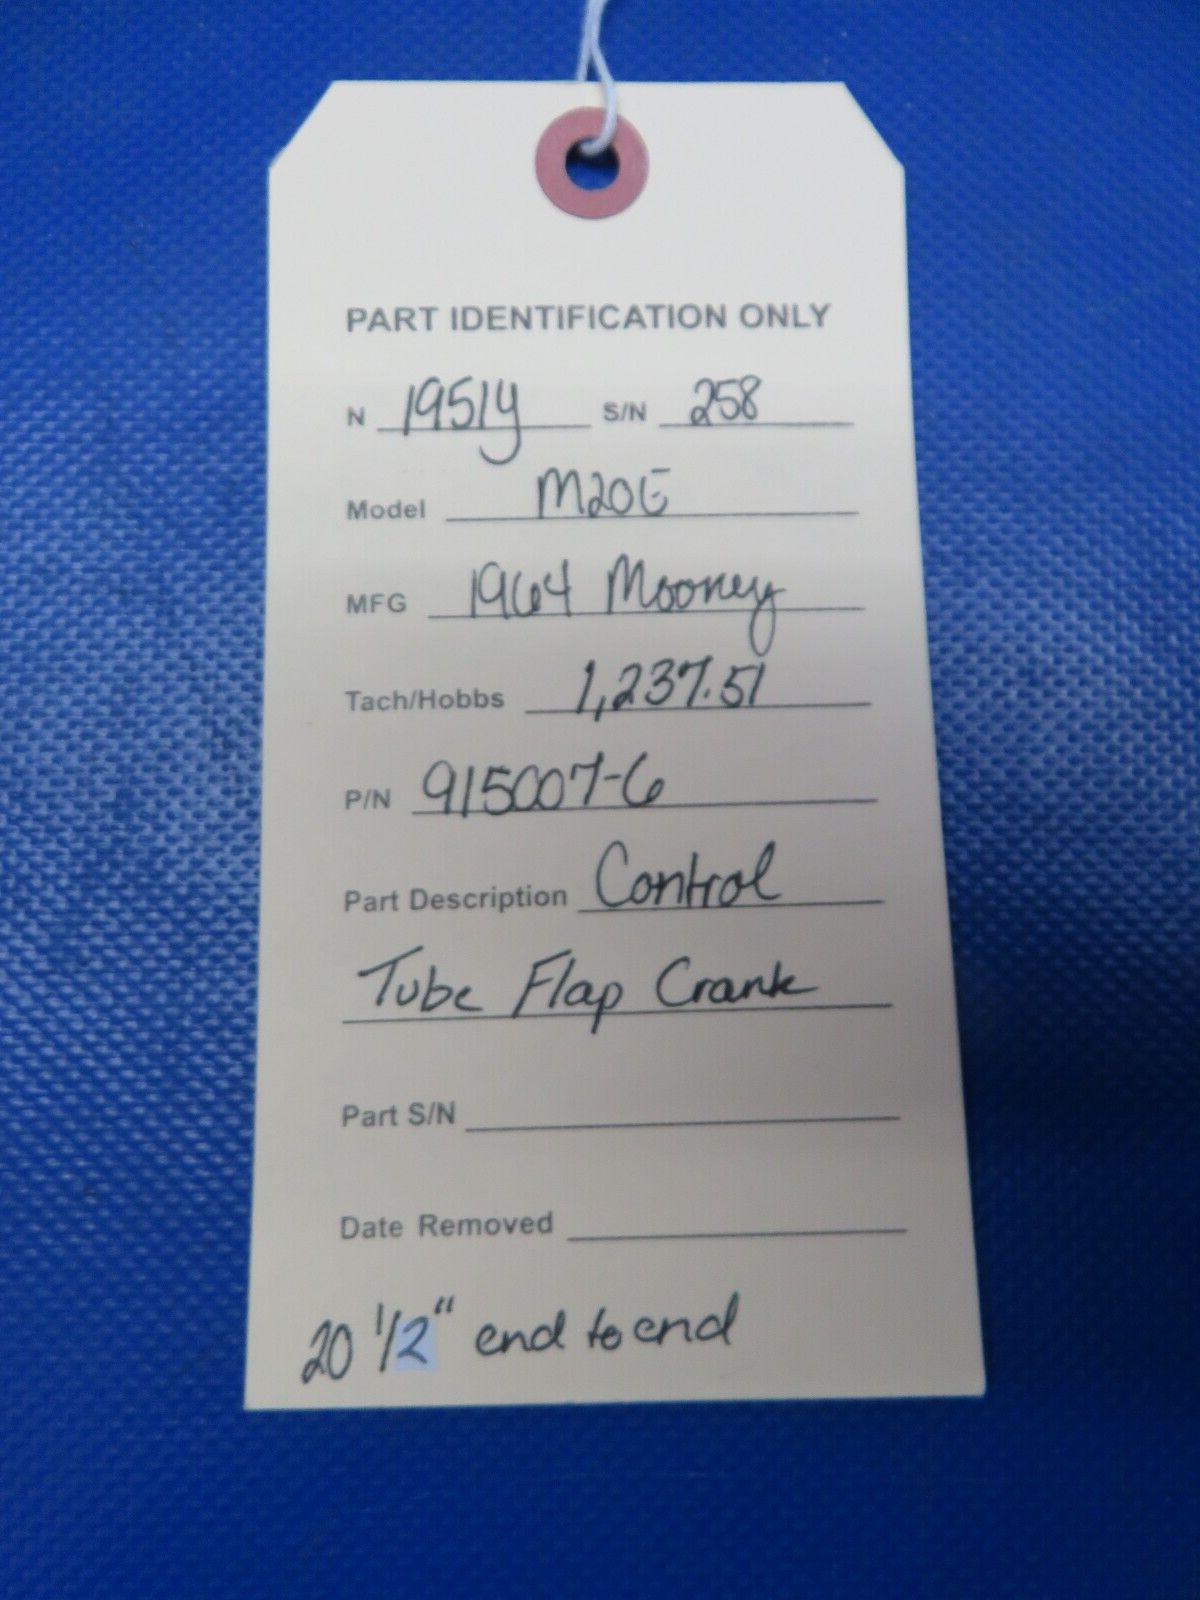 PART IDENTIFICATION ONLY
N 1951Y S/N 258
Model M20E
MFG 1964 Mooney
Tach/Hobbs 1,237.51
P/N 915007-6
Part Description Control
Tube Flap Crank
Part S/N
Date Removed
20 1/2" end to end